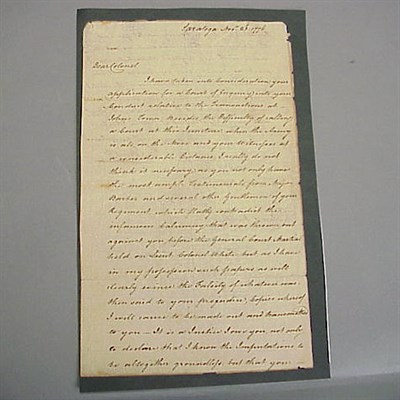 Saratoga Nov.r 2 1776
Dear Colonel
I have taken into Consideration your
application for a Court of Enquiry into your
Conduct relative to the Transactions at
Johns Town. Besides the Difficulty of calling
a Court at this Juncture when the Army
is all on the Move and your Witnesses at
a considerable Distance I really do not
think it necessary as you not only have
the most ample Testimonials from Major
Barber and several other Gentlemen of your
Regiment which flatly contradict the
infamous Calumny that was thrown out
against you before the General Court Martial
held on Lieut Colonel White but as I have
in my possession such papers as will
clearly evince the Falsity of whatever was
then said to your prejudice, Copies whereof
I will cause to be made out and transmitted
to you — It is a Justice I owe you not only
to declare that I know the Imputations to
be altogether groundless, but that you —